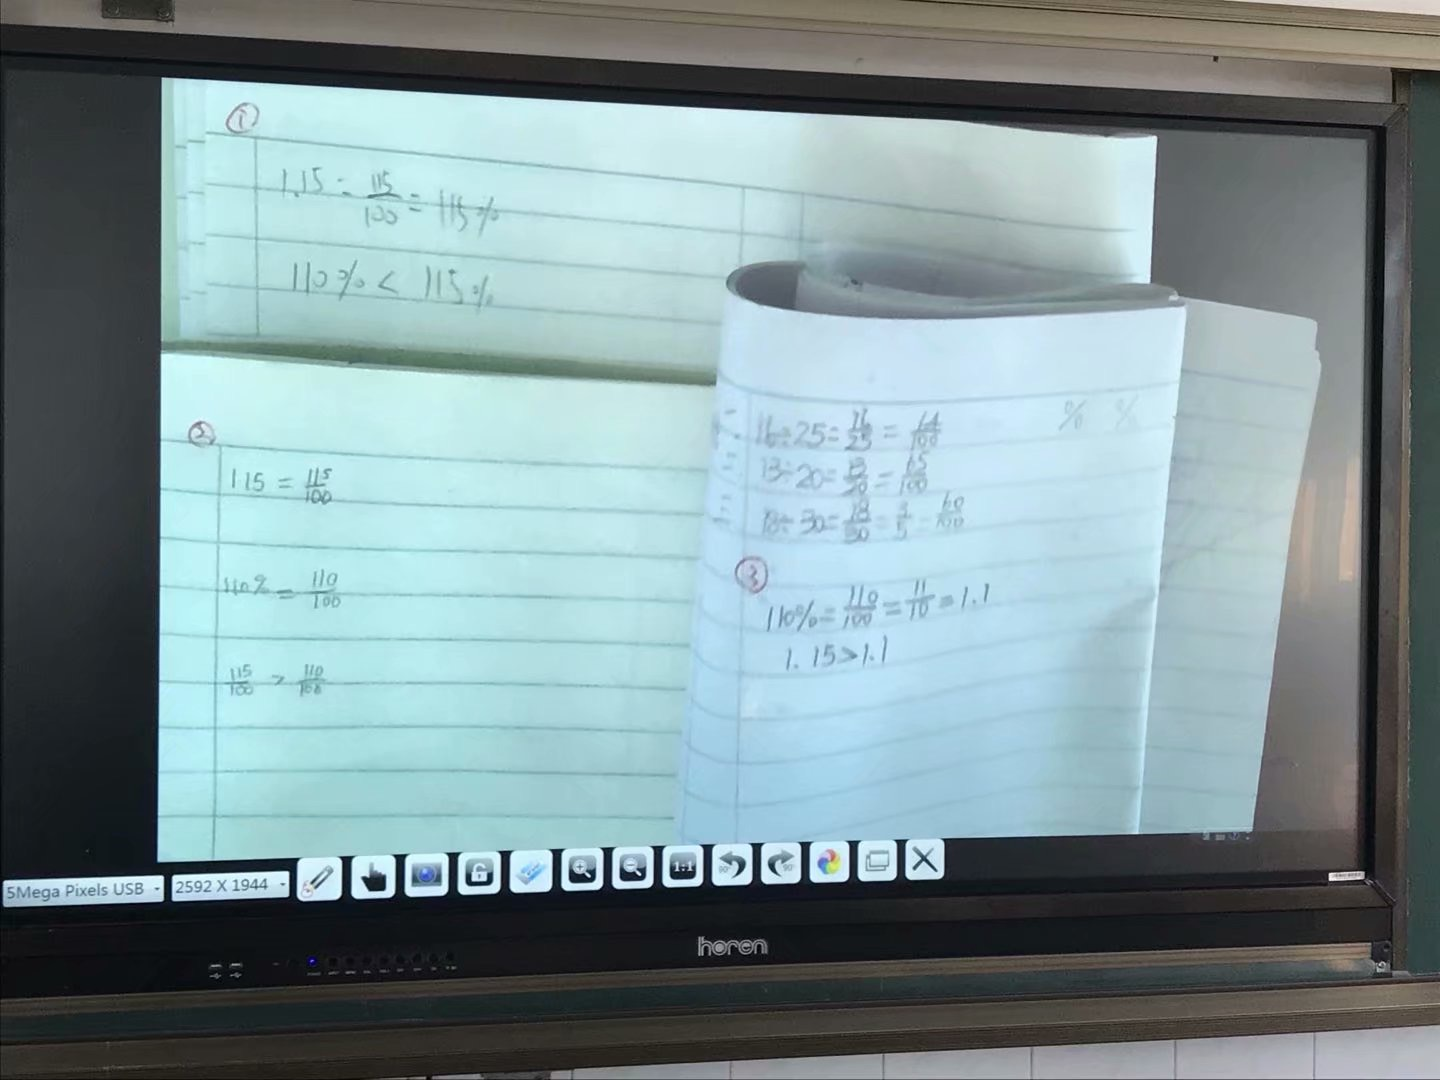 ①
1.15 = 115/100 = 115%
110% < 115%
②
1 15 = 115/100
110% = 110/100
115/100 > 110/100
% %
16÷25=16/25=64/100
13÷20=13/20=65/100
18÷30=18/30=3/5=60/100
③
110%=110/100=11/10=1.1
1.15>1.1
5Mega Pixels USB
2592 X 1944
1:1
90°
90°
horen